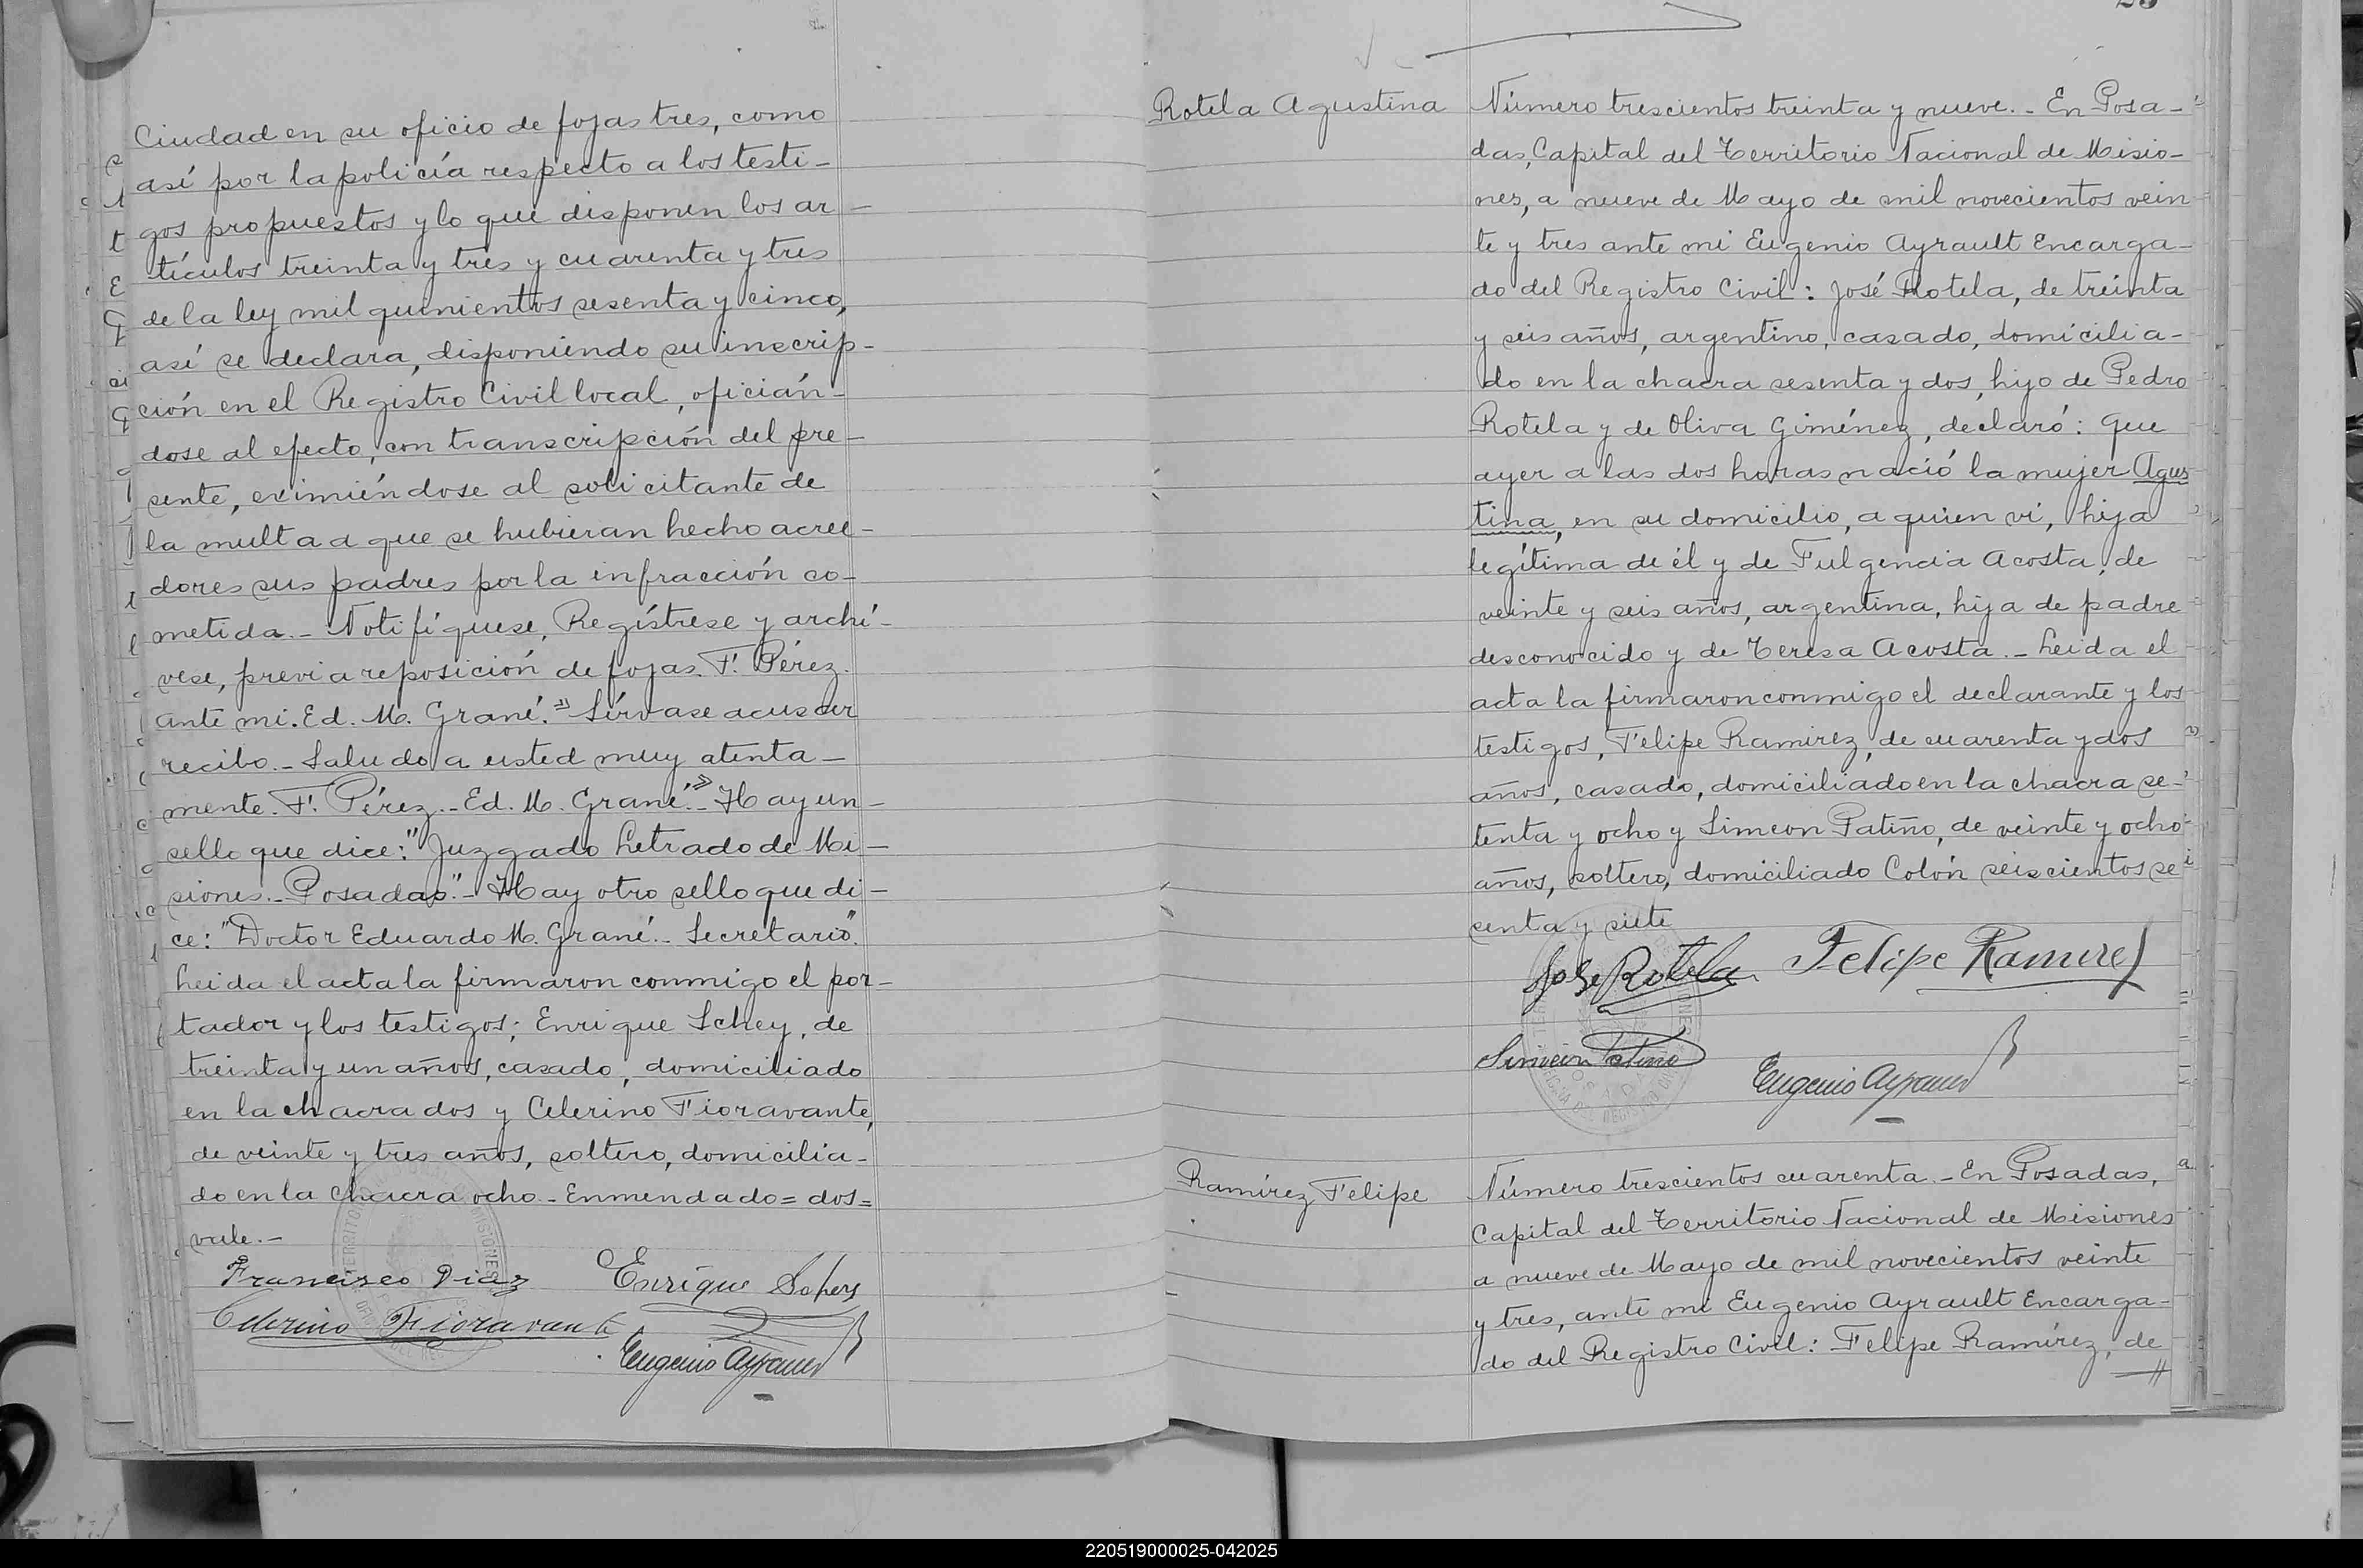 Ciudad en su oficio de fojas tres, como
así por la policía respecto a los testi-
gos propuestos y lo que disponen los ar-
tículos treinta y tres y cuarenta y tres
de la ley mil quinientos sesenta y cinco,
así se declara, disponiendo su inscrip-
ción en el Registro Civil local, oficián-
dose al efecto, con transcripción del pre-
sente, eximiéndose al solicitante de
la multa a que se hubieran hecho acree-
dores sus padres por la infracción co-
metida.- Notifíquese, Regístrese y archí-
vese, previa reposición de fojas. F. Pérez.
ante mi. Ed. M. Grané." Sírvase acusar
recibo.- Saludo a usted muy atenta-
mente. F. Pérez.- Ed. M. Grané."- Hay un-
sello que dice: "Juzgado Letrado de Mi-
siones.- Posadas".- Hay otro sello que di-
ce: "Doctor Eduardo M. Grané.- Secretario".
Leida el acta la firmaron conmigo el por-
tador y los testigos; Enrique Schey, de
treinta y un años, casado, domiciliado
en la chacra dos y Celerino Fioravante,
de veinte y tres años, soltero, domicilia-
do en la chacra ocho.- Enmendado = dos =
vale.-
Francisco Diaz Enrique Schey
Celerino Fioravante
Eugenio Ayrault
Rotela Agustina
Número trescientos treinta y nueve.- En Posa-
das, Capital del Territorio Nacional de Misio-
nes, a nueve de Mayo de mil novecientos vein
te y tres ante mi Eugenio Ayrault Encarga-
do del Registro Civil: José Rotela, de treinta
y seis años, argentino, casado, domicilia-
do en la chacra sesenta y dos, hijo de Pedro
Rotela y de Oliva Giménez, declaró: Que
ayer a las dos horas nació la mujer Agus
tina, en su domicilio, a quien vi, hija
legítima de él y de Fulgencia Acosta, de
veinte y seis años, argentina, hija de padre
desconocido y de Teresa Acosta.- Leida el
acta la firmaron conmigo el declarante y los
testigos, Felipe Ramirez, de cuarenta y dos
años, casado, domiciliado en la chacra se-
tenta y ocho y Simeon Patiño, de veinte y ocho
años, soltero, domiciliado Colón seiscientos se
senta y siete
Jose Rotela Felipe Ramirez
Simeon Patiño
Eugenio Ayrault
Ramírez Felipe
Número trescientos cuarenta.- En Posadas,
Capital del Territorio Nacional de Misiones
a nueve de Mayo de mil novecientos veinte
y tres, ante mi Eugenio Ayrault Encarga-
do del Registro Civil: Felipe Ramírez, de
220519000025-042025